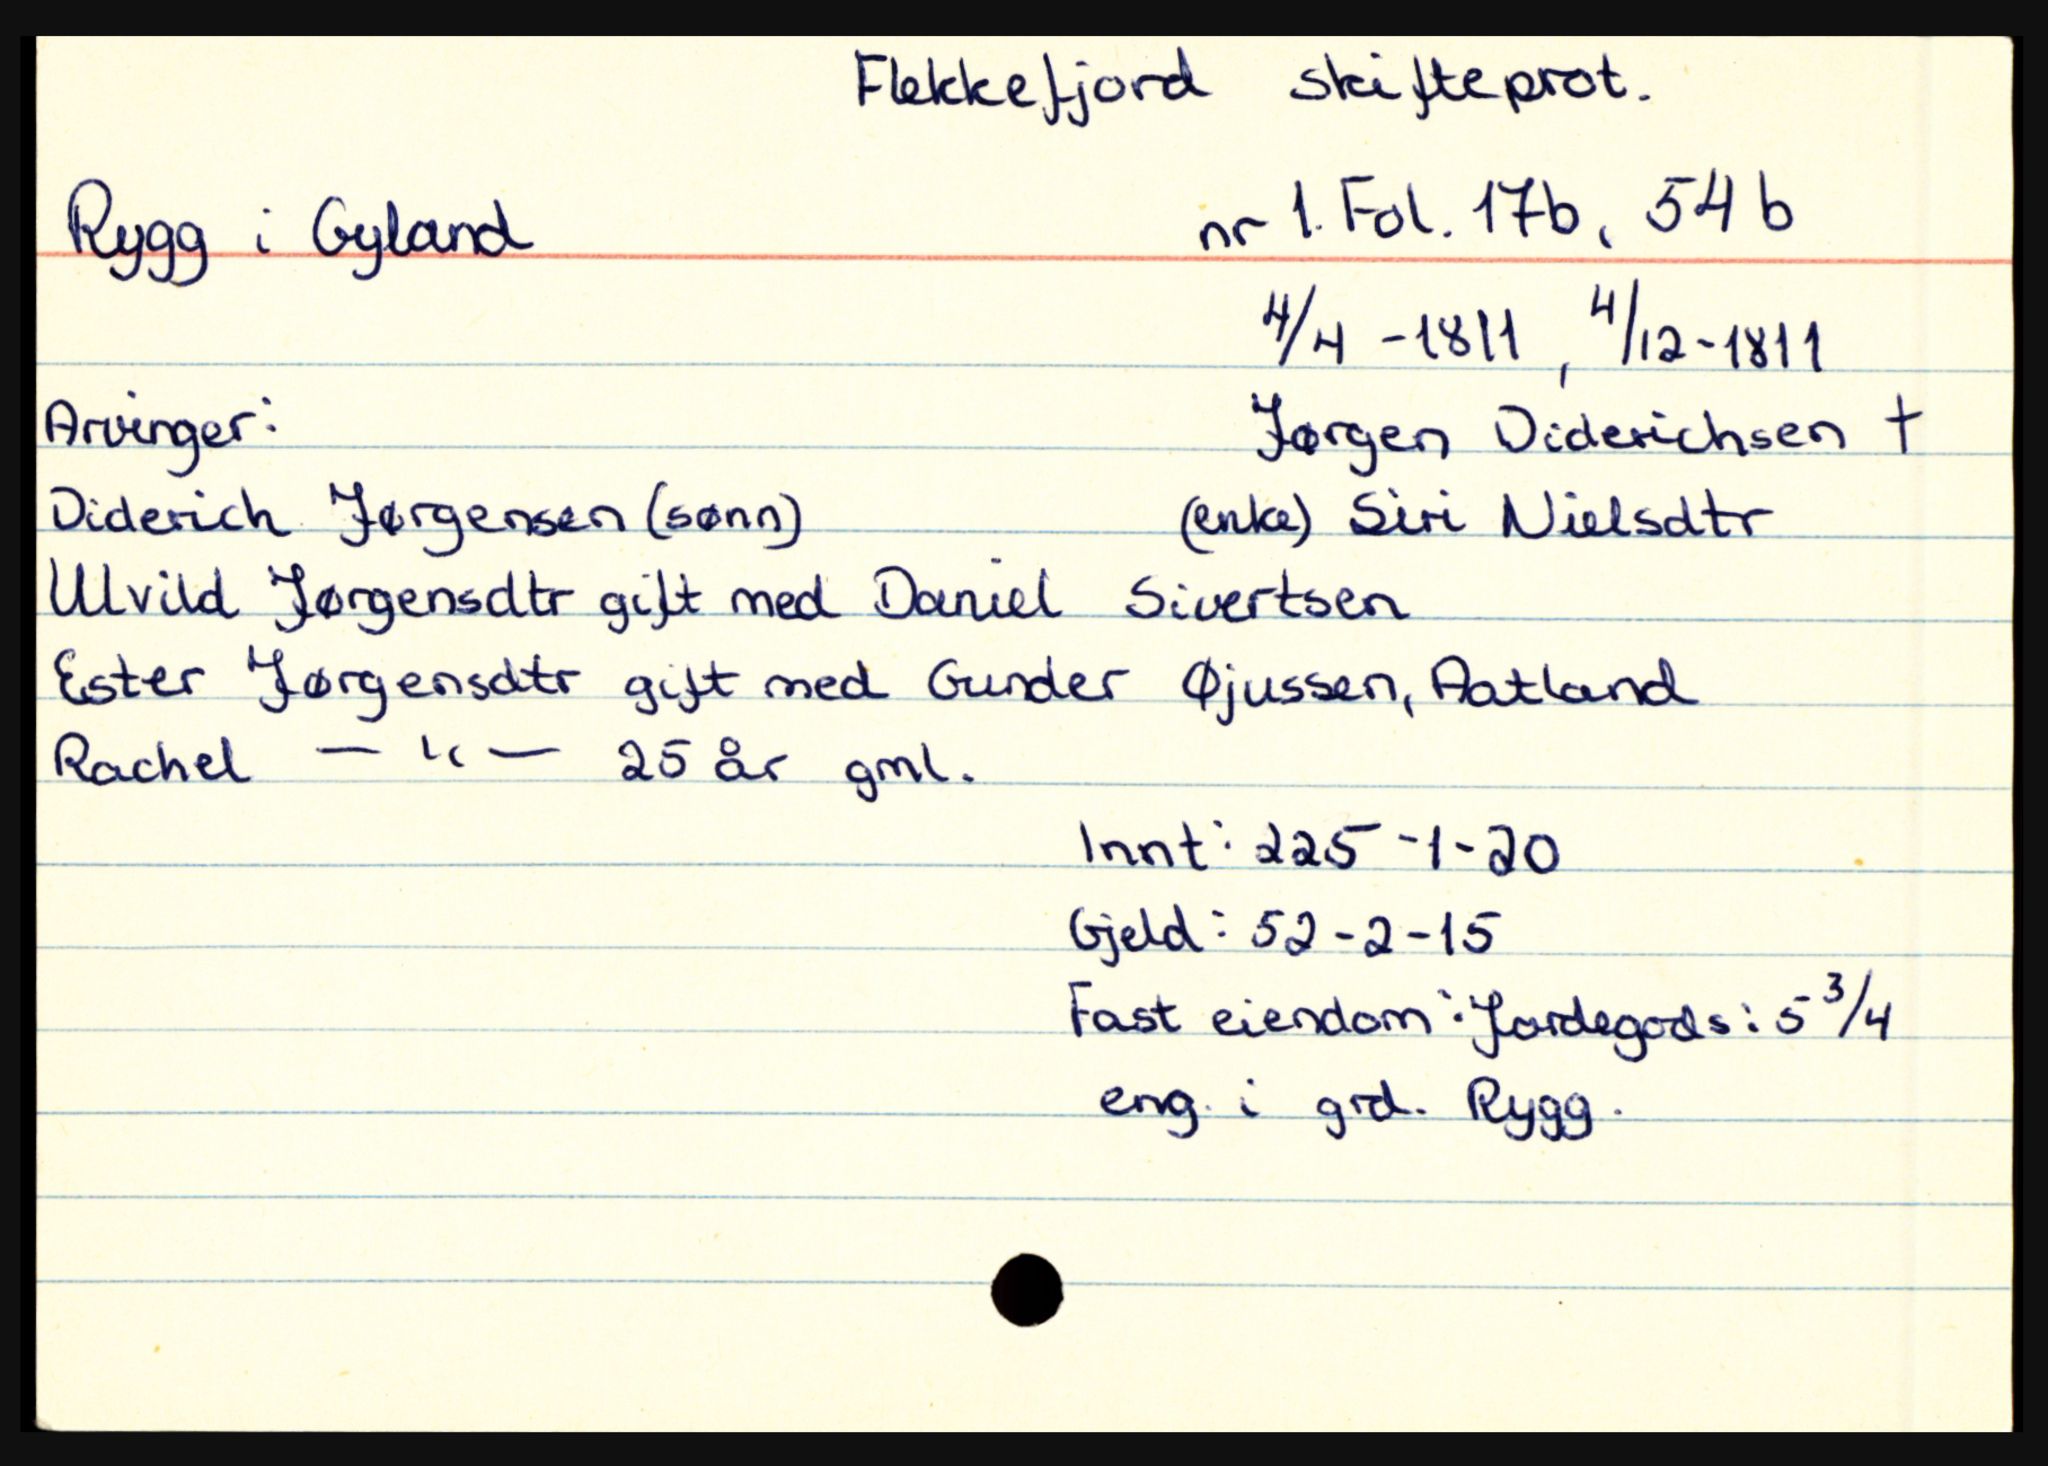 Flekkefjord skifteprot.
Rygg i Gyland nr 1. Fol. 17b, 54b
4/4 - 1811, 4/12 - 1811
Arvinger: Jørgen Diderichsen †
Diderich Jørgensen (sønn) (enke) Siri Nielsdtr
Ulvild Jørgensdtr gift med Daniel Sivertsen
Ester Jørgensdtr gift med Gunder Øjussen, Aatland
Rachel — " — 25 år gml.
Innt: 225 - 1 - 20
Gjeld: 52 - 2 - 15
Fast eiendom: Jordegods: 5 3/4
eng. i grd. Rygg.